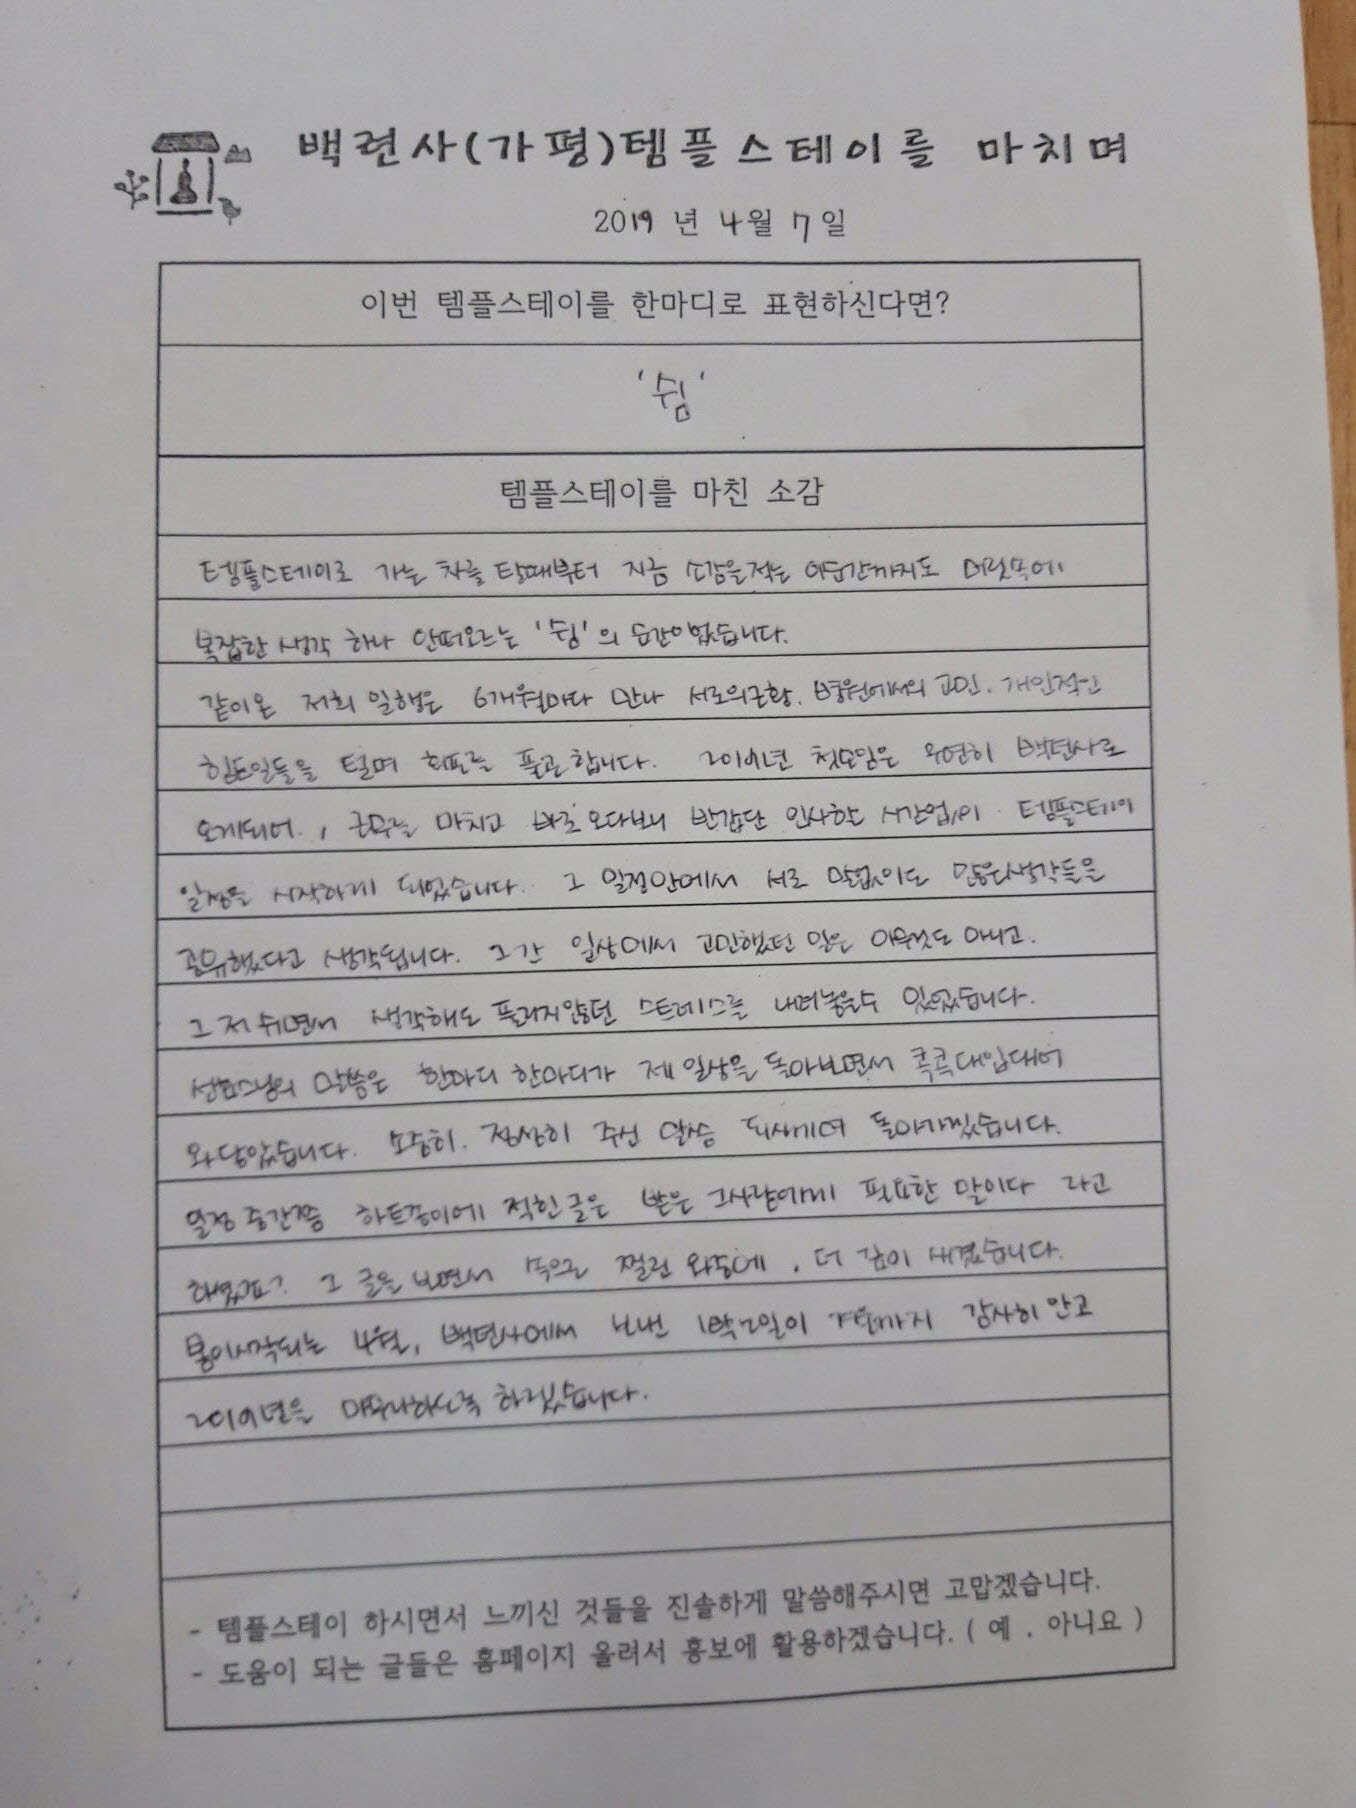 백련사(가평)템플스테이를 마치며
2019 년 4월 7일
이번 템플스테이를 한마디로 표현하신다면?
'쉼'
템플스테이를 마친 소감
템플스테이로 가는 차를 탈때부터 지금 소감을적는 이순간까지도 머릿속에
복잡한 생각 하나 안떠오르는 '쉼'의 순간이었습니다.
같이온 저희 일행은 6개월마다 만나 서로의근황. 병원에서의 고민. 개인적인
힘든일들을 털며 회포를 풀곤합니다. 2019년 첫모임은 우연히 백련사로
오게되어. , 근무를 마치고 바로 오다보니 반갑단 인사할 시간없이 템플스테이
일정을 시작하게 되었습니다. 그 일정안에서 서로 말없이도 많은생각들을
공유했다고 생각됩니다. 그간 일상에서 고민했던 일은 아무것도 아니고.
그저 쉬면서 생각해도 풀리지않던 스트레스를 내려놓을수 있었습니다.
말씀은 한마디 한마디가 제 일상을 돌아보면서 콕콕대입대어
와닿았습니다. 소중히. 정성히 주신 말씀 되새기며 돌아가겠습니다.
일정 중간쯤 하트종이에 적힌글은 받은 그사람에게 필요한 말이다 라고
하셨죠? 그 글을 보면서 속으로 찔린 와중에 , 더 깊이 새겼습니다.
봄이시작되는 4월, 백련사에서 보낸 1박2일이 감사히 안고
2019년을 마무리하도록 하겠습니다.
- 템플스테이 하시면서 느끼신 것들을 진솔하게 말씀해주시면 고맙겠습니다.
- 도움이 되는 글들은 홈페이지 올려서 홍보에 활용하겠습니다. ( 예 . 아니요 )